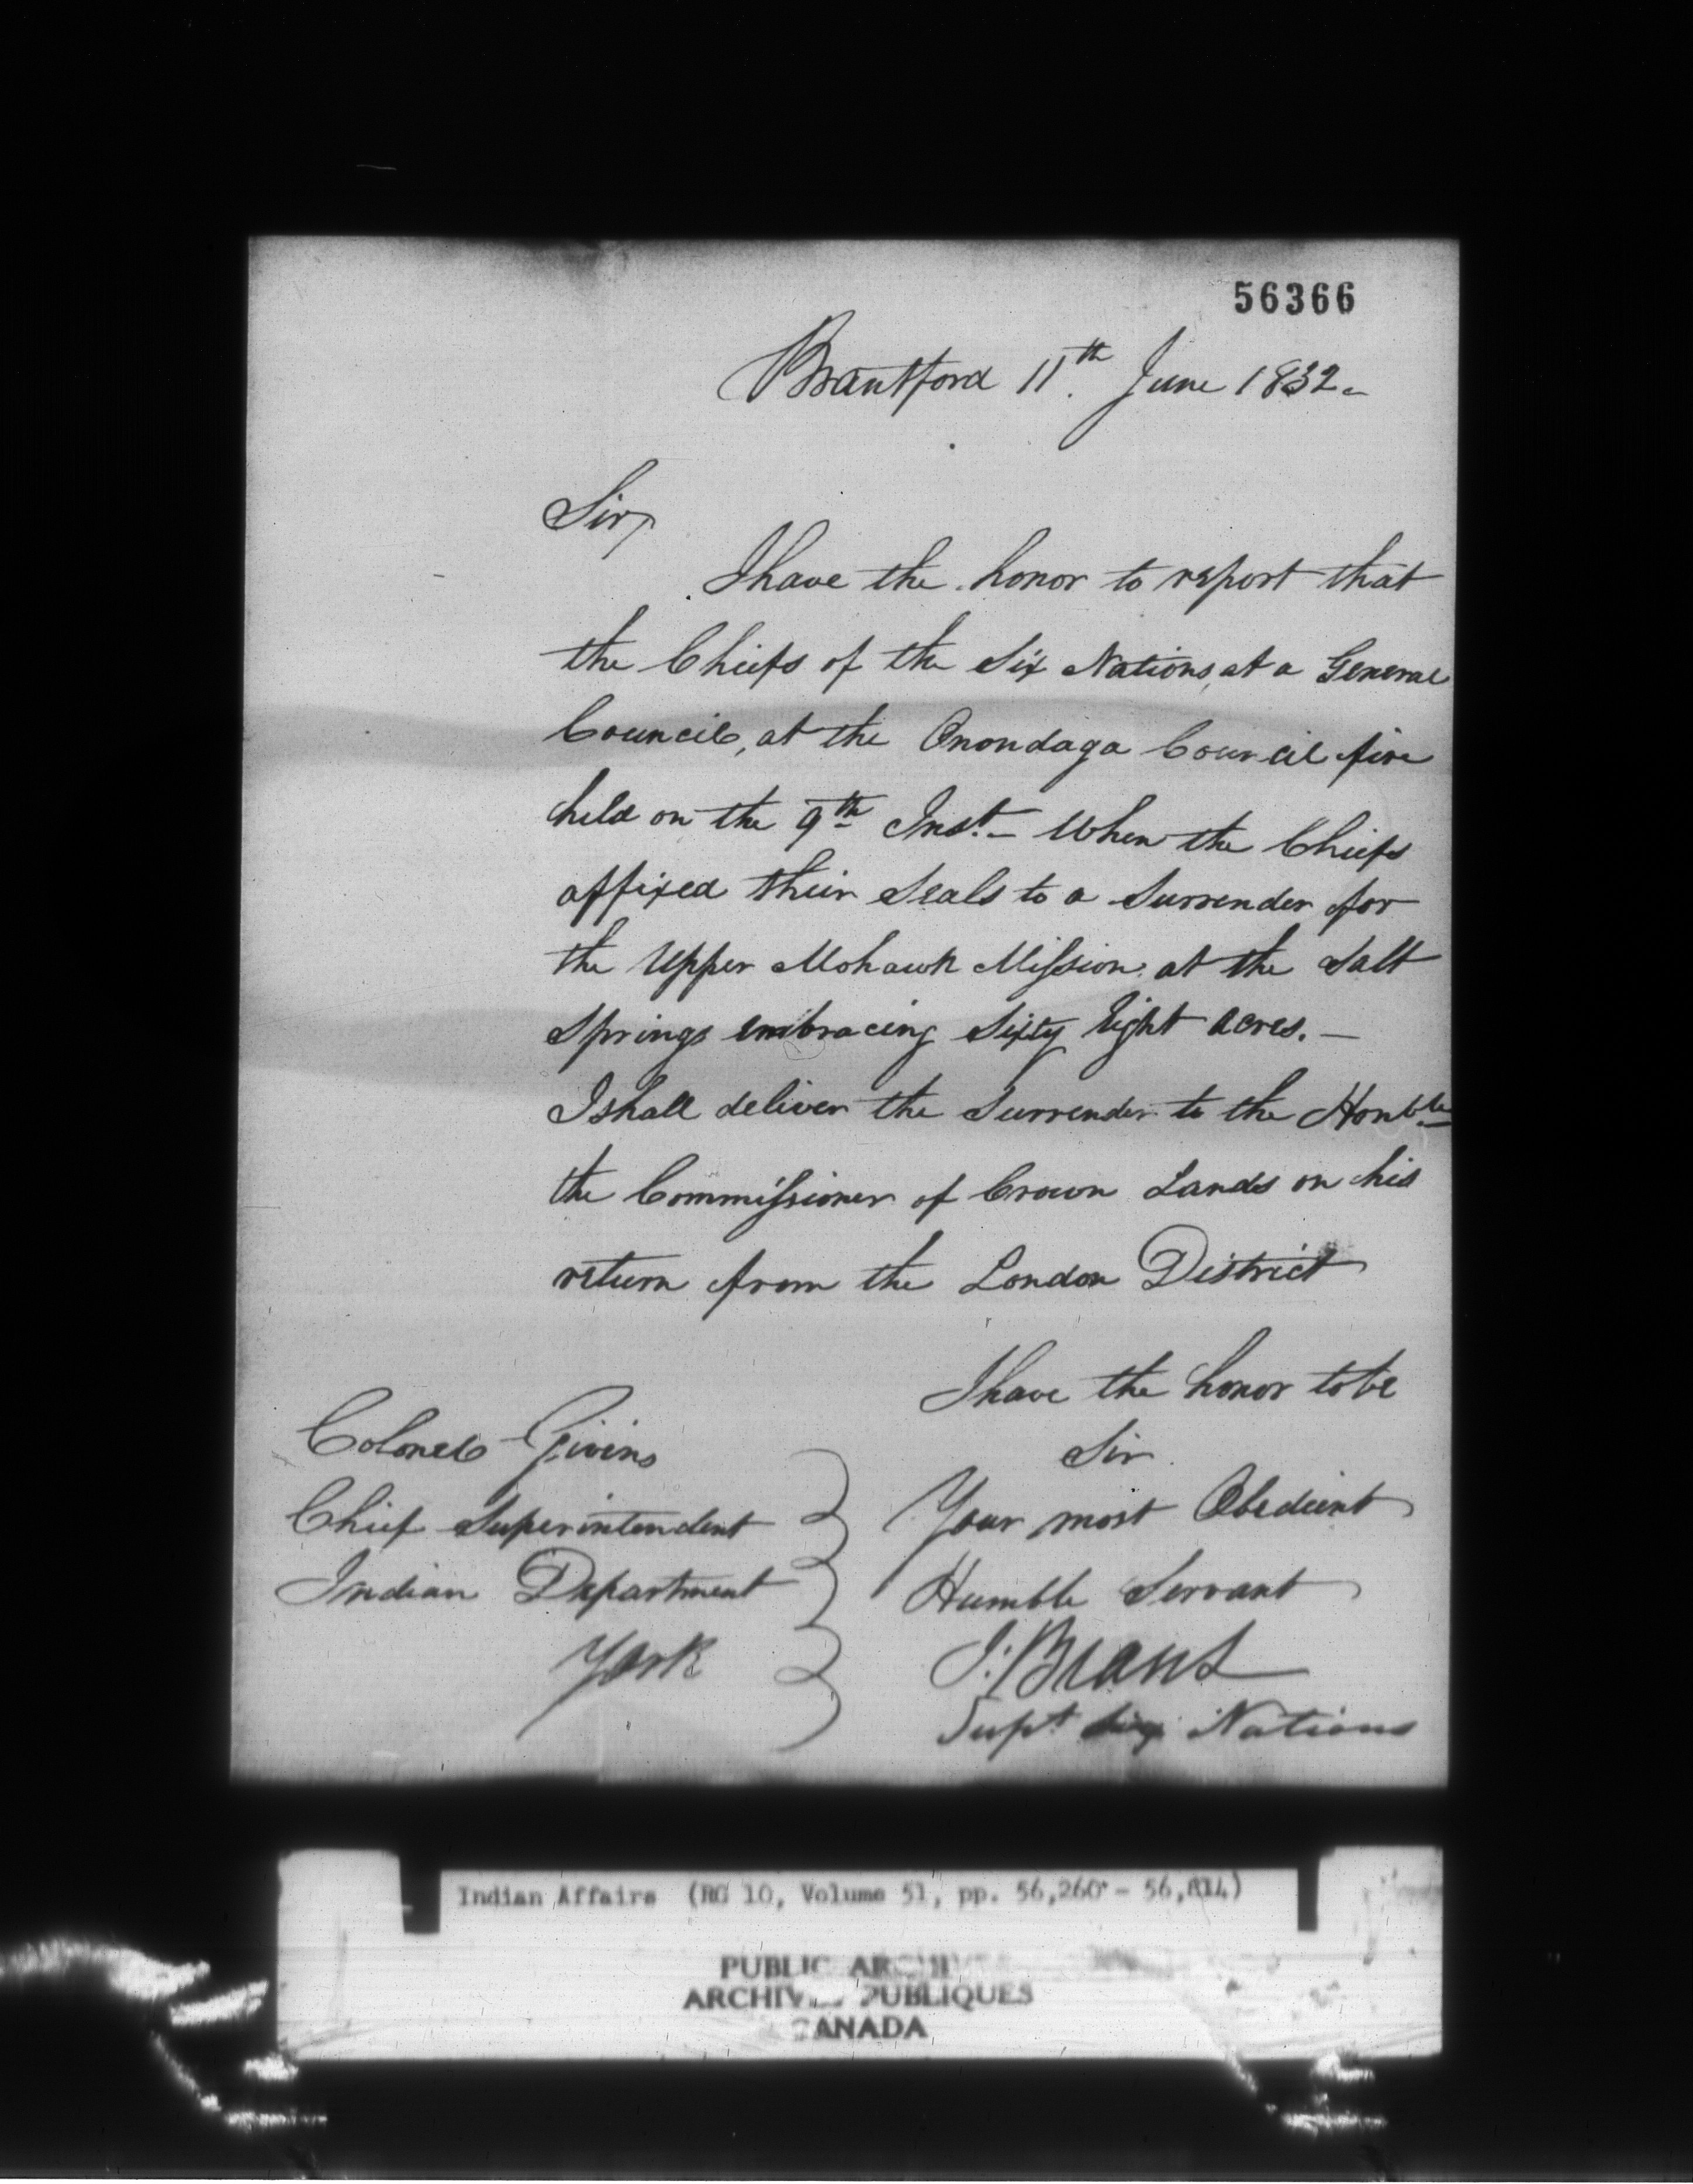 56366
Brantford 11th. June 1832.
Sir,
I have the honor to report that
the Chiefs of the Six Nations, at a General
Council, at the Onondaga Council fire
held on the 9th Inst. - When the Chiefs
affixed their Seals to a Surrender for
the Upper Mohawk Mission at the Salt
Springs embracing Sixty Eight Acres. -
I shall deliver the Surrender to the Honble
the Commissioner of Crown Lands on his
return from the London District
I have the honor to be
Sir
Your most Obedient
Humble Servant
J: Brant
Supt Six Nations
Colonel Givins
Chief Superintendent
Indian Department
York
Indian Affairs (RG 10, Volume 51, pp. 56,260 - 56,814)
PUBLIC ARCHIVES
ARCHIVES PUBLIQUES
CANADA